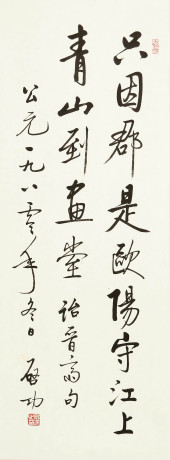 只因郡是歐陽守江上
青山到畫堂 詒晉齋句
公元一九八零年冬日 啟功